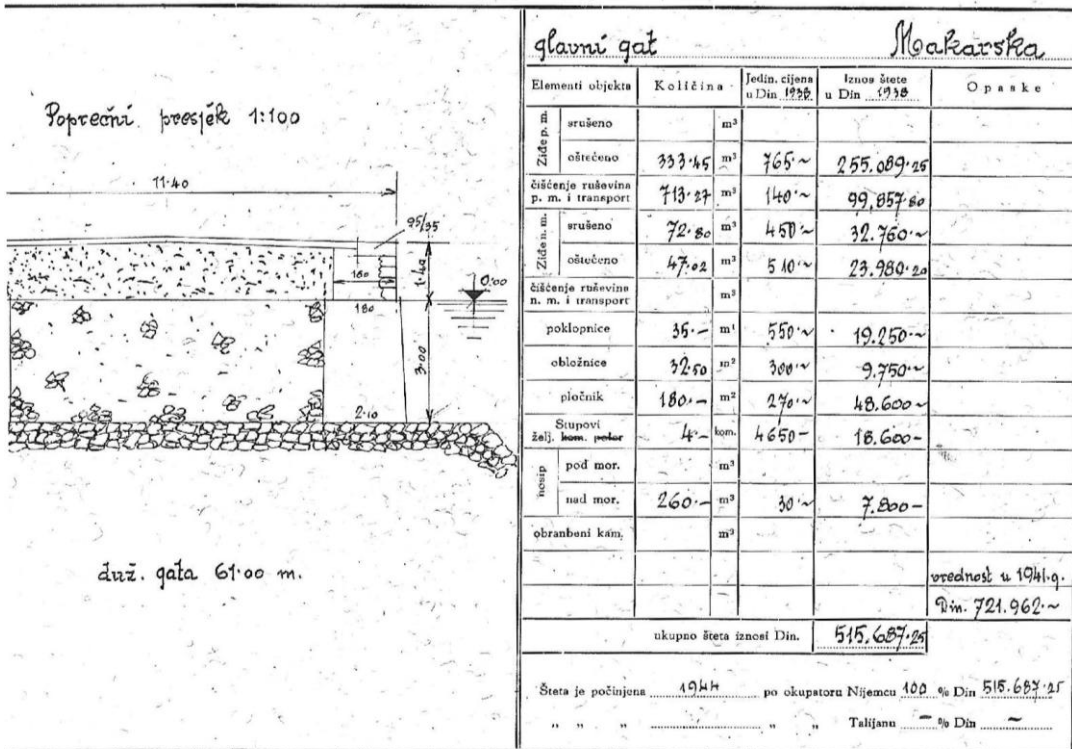 Poprečni presjek 1:100
11.40
25/35
180
1.40
0.00
180
3.00
2.10
duž. gata 61.00 m.
glavni gat Makarska
Elementi objekta Količina Jedin. cijena u Din 1938 Iznos štete u Din 1938 Opaske
Ziđe p. m. srušeno m³
oštećeno 333.45 m³ 765.~ 255.089.25
čišćenje ruševina p. m. i transport 713.27 m³ 140.~ 99.857.80
Ziđe n. m. srušeno 72.80 m³ 450.~ 32.760.~
oštećeno 47.02 m³ 510.~ 23.980.20
čišćenje ruševina n. m. i transport m³
poklopnice 35.- m¹ 550.~ 19.250.~
obložnice 32.50 m² 300.~ 9.750.~
pločnik 180.- m² 270.~ 48.600~
Stupovi želj. kom. 4.- kom. 4650- 18.600-
nosip pod mor. m³
nad mor. 260.- m³ 30.~ 7.800-
obranbeni kam. m³
vrednost u 1941.g.
Din. 721.962.~
ukupno šteta iznosi Din. 515.687.25
Šteta je počinjena 1944 po okupatoru Nijemcu 100 % Din 515.687.25
" " " " " Talijanu - % Din ~